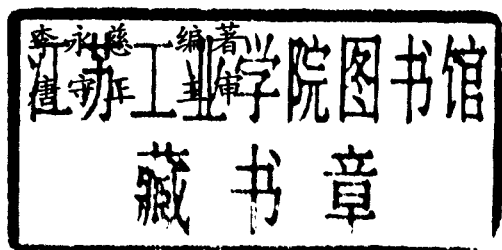 李永慈 编著
唐守正 主审
江苏工业学院图书馆
藏书章